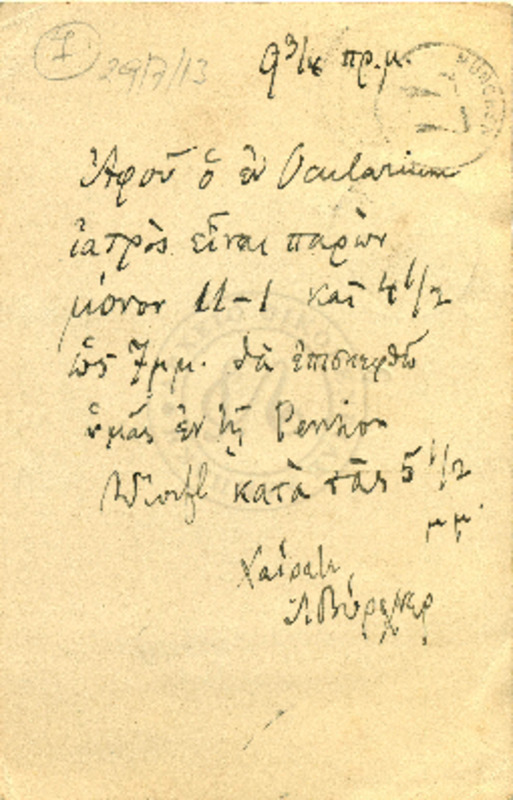 1
29/7/13
9 3/4 πρ.μ.
MÜNCHEN
Ἀφοῦ ὁ ἐν Ocularium
ἰατρὸς εἶναι παρὼν
μόνον 11-1 καὶ 4 1/2
ὡς 7 μμ. θὰ ἐπισκεφθῶ
ὑμᾶς ἐν τῇ Pension
κατὰ τὰς 5 1/2
μμ.
Χαίρετε
Α. Βύρχνερ